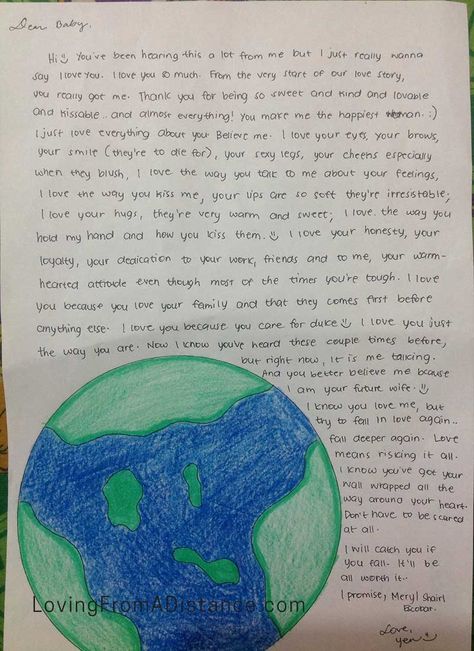 Dear Baby,
Hi You've been hearing this a lot from me but I just really wanna
say I love you. I love you so much. From the very start of our love story,
you really got me. Thank you for being so sweet and kind and lovable
and kissable.. and almost everything! You make me the happiest woman. :)
I just love everything about you. Believe me. I love your eyes, your brows,
your smile (they're to die for), your sexy legs, your cheeks especially
when they blush, I love the way you talk to me about your feelings,
I love the way you kiss me, your lips are so soft they're irresistable;
I love your hugs, they're very warm and sweet; I love the way you
hold my hand and how you kiss them. I love your honesty, your
loyalty, your dedication to your work, friends and to me, your warm-
hearted attitude even though most of the times you're tough. I love
you because you love your family and that they comes first before
anything else. I love you because you care for duke I love you just
the way you are. Now I know you've heard these couple times before,
but right now, it is me talking.
And you better believe me because
I am your future wife.
I know you love me, but
try to fall in love again..
fall deeper again. Love
means risking it all.
I know you've got your
wall wrapped all the
way around your heart.
Don't have to be scared
at all.
I will catch you if
you fall. It'll be
all worth it..
I promise, Meryl Shairl
Escobar.
Love,
yen
LovingFromADistance.com